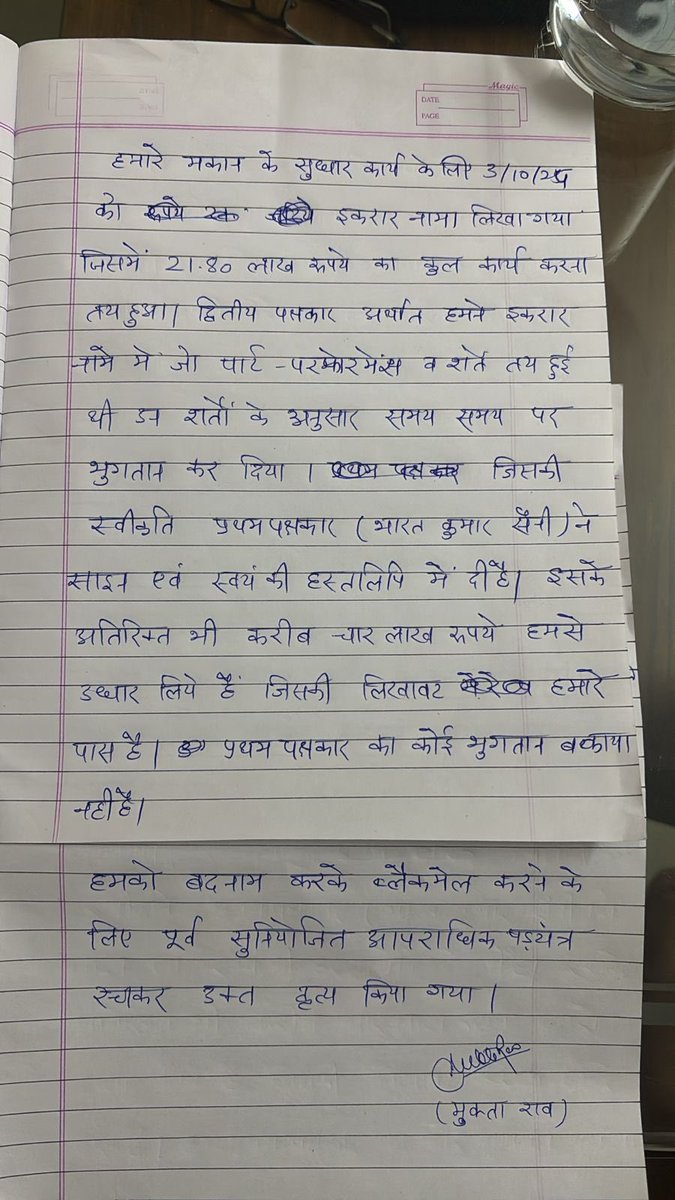 Magic
DATE
PAGE
हमारे मकान के सुधार कार्य के लिए 3/10/24
को इकरार नामा लिखा गया
जिसमें 21.80 लाख रुपये का कुल कार्य करना
तय हुआ। द्वितीय पक्षकार अर्थात हमने इकरार
नामे में जो पार्ट - परफोरमेंस व शर्ते तय हुई
थी उन शर्तों के अनुसार समय समय पर
भुगतान कर दिया। जिसकी
स्वीकृति प्रथम पक्षकार (भारत कुमार सैनी) ने
साइन एवं स्वयं की हस्तलिपि में दी है। इसके
अतिरिक्त भी करीब चार लाख रुपये हमसे
उधार लिये हैं जिसकी लिखावट हमारे
पास है। प्रथम पक्षकार का कोई भुगतान बकाया
नही है।
हमको बदनाम करके ब्लैकमेल करने के
लिए पूर्व सुनियोजित आपराधिक षड़यंत्र
रचाकर उक्त कृत्य किया गया।
(मुक्ता राव)